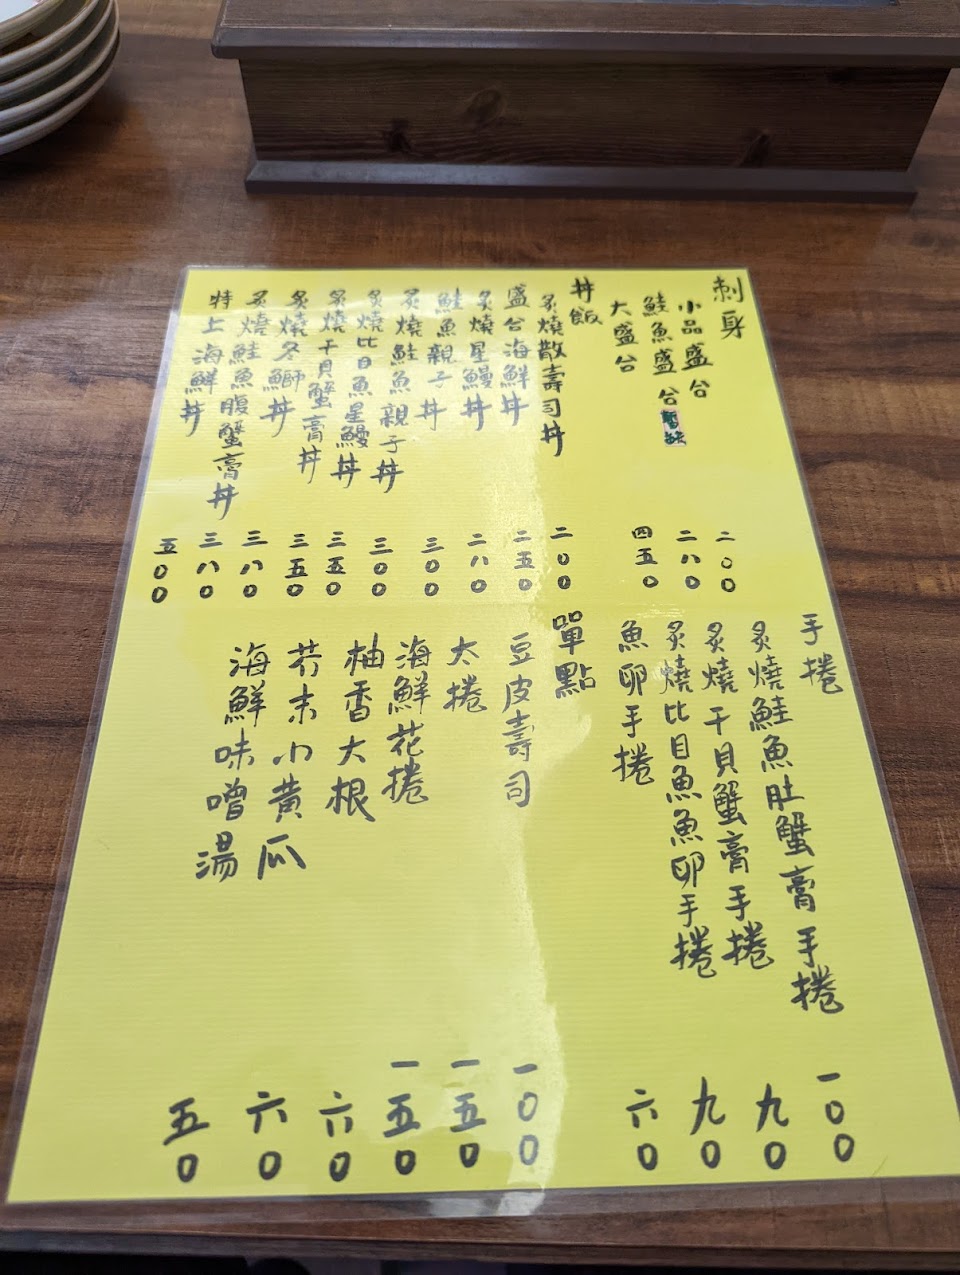 刺身
小品盛合 二00
鮭魚盛合 二八0
大盛合 四五0
丼飯
炙燒散壽司丼 二00
盛合海鮮丼 二五0
炙燒星鰻丼 二八0
鮭魚親子丼 三00
炙燒鮭魚親子丼 三00
炙燒比目魚星鰻丼 三五0
炙燒干貝蟹膏丼 三五0
炙燒冬鰤丼 三八0
炙燒鮭魚腹蟹膏丼 三八0
特上海鮮丼 五00
手捲
炙燒鮭魚肚蟹膏手捲 一00
炙燒干貝蟹膏手捲 九0
炙燒比目魚魚卵手捲 九0
魚卵手捲 六0
單點
豆皮壽司 一00
太捲 一五0
海鮮花捲 一五0
柚香大根 六0
芥末小黃瓜 六0
海鮮味噌湯 五0